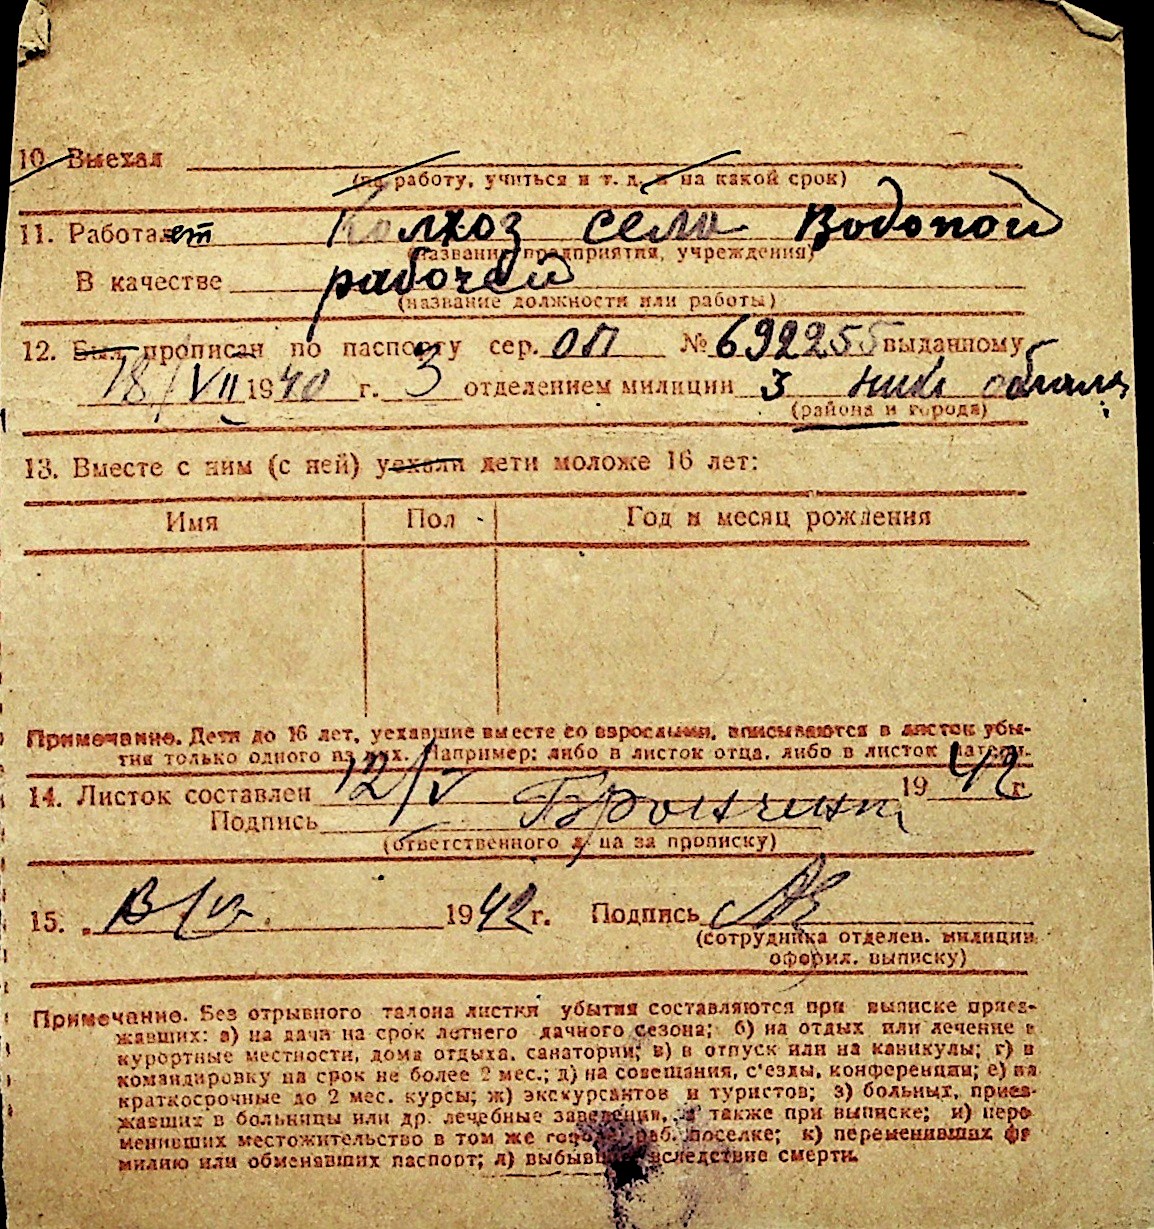 10. Выехал
(на работу, учиться и т. д. и на какой срок)
11. Работает Колхоз село Водопой
(название предприятия, учреждения)
В качестве рабочей
(название должности или работы)
12. Был прописан по паспорту сер. ОП № 692255 выданному
18/VII 1940 г. 3 отделением милиции 3 Ник области
(района и города)
13. Вместе с ним (с ней) уехали дети моложе 16 лет:
Имя Пол Год и месяц рождения
Примечание. Дети до 16 лет, уехавшие вместе со взрослыми, вписываются в листок убы-
тия только одного из них. Например: либо в листок отца, либо в листок матери.
14. Листок составлен 12/V 1942 г.
Подпись
(ответственного лица за прописку)
15. 1942 г. Подпись
(сотрудника отделен. милиции
оформл. выписку)
Примечание. Без отрывного талона листки убытия составляются при выписке приез-
жавших: а) на дачи на срок летнего дачного сезона; б) на отдых или лечение в
курортные местности, дома отдыха, санатории; в) в отпуск или на каникулы; г) в
командировку на срок не более 2 мес.; д) на совещания, с'езды, конференции; е) на
краткосрочные до 2 мес. курсы; ж) экскурсантов и туристов; з) больных, приез-
жавших в больницы или др. лечебные заведения, а также при выписке; и) пере-
менивших местожительство в том же городе, раб. поселке; к) переменивших фа
милию или обменявших паспорт; л) выбывших вследствие смерти.